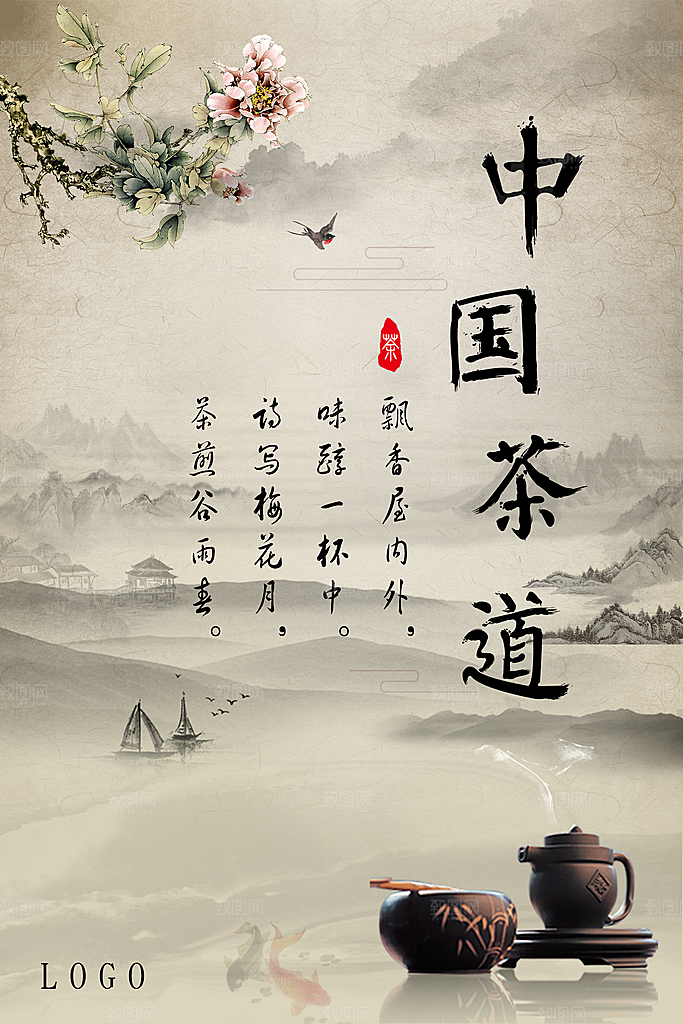 中国茶道
茶
飘香屋内外，
味醇一杯中。
诗写梅花月，
茶煎谷雨春。
LOGO